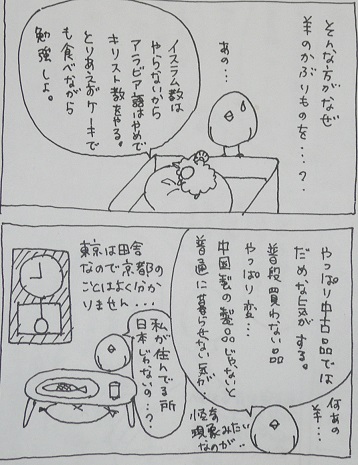 そんな方がなぜ
羊のかぶりものを・・・?
あの・・・
イスラム教は
やらないから
アラビア語はやめて
キリスト教をやる。
とりあえずケーキで
も食べながら
勉強しよ。
何あの
羊・・・
やっぱり中古品では
だめな気がする。
普段買わない品
やっぱり変・・・
中国製の製品じゃないと
普通に暮らせない気が・・
怪奇
現象みたい
なのが・・
私が住んでる所
日本じゃないの・・?
東京は田舎
なので京都の
ことはよく分か
りません・・・